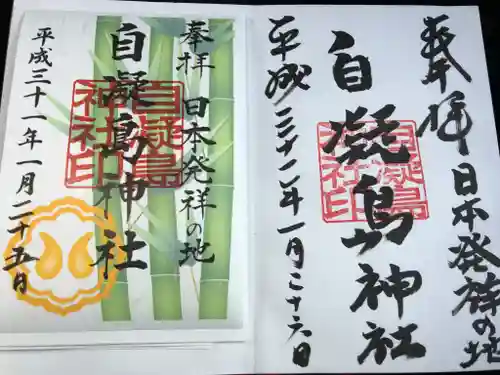 奉拝 日本発祥の地
自凝島神社
自凝島
神社印
平成二十二年一月二十六日
奉拝 日本発祥の地
自凝島神社
自凝島
神社印
平成三十一年一月二十五日